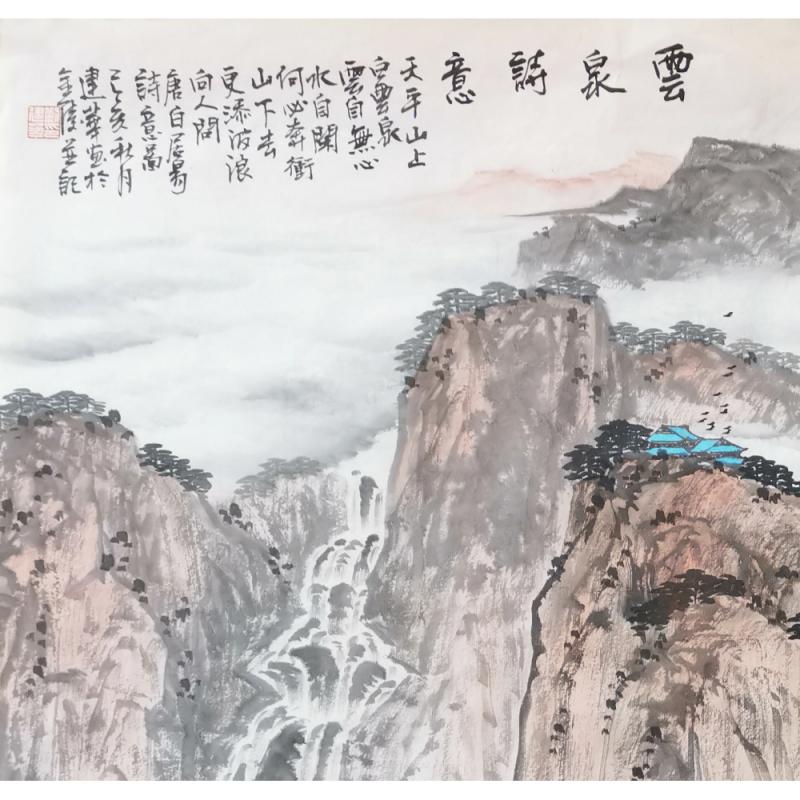 雲泉詩意
天平山上
白雲泉
雲自無心
水自閑
何必奔衝
山下去
更添波浪
向人間
唐白居易
詩意圖
己亥秋月
建華画於
金陵並記